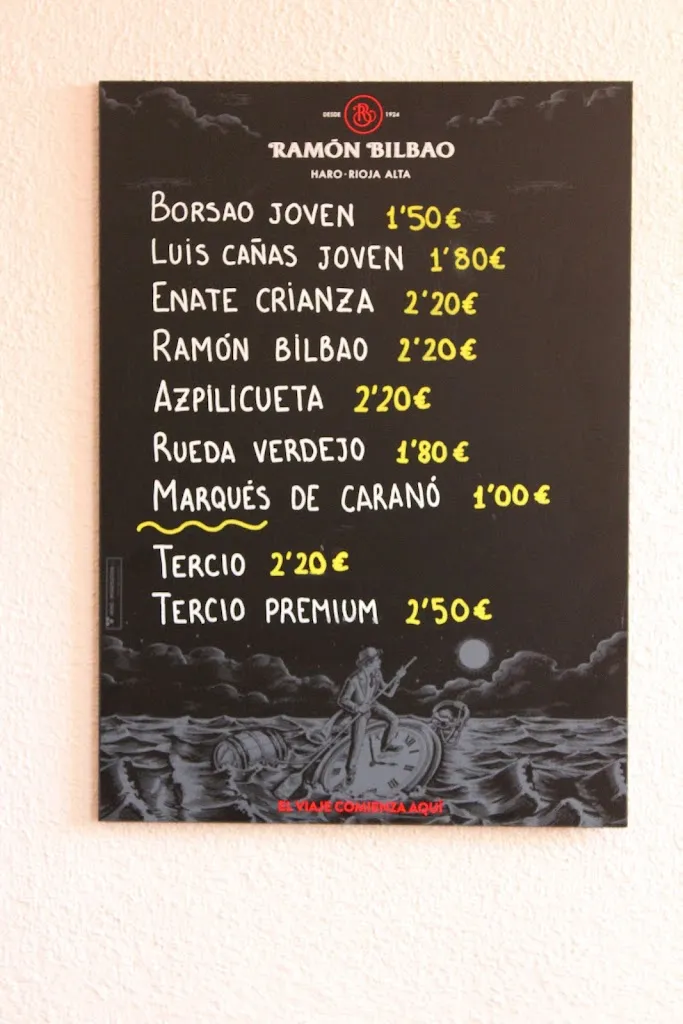 DESDE 1924
RAMÓN BILBAO
HARO-RIOJA ALTA
BORSAO JOVEN 1'50€
LUIS CAÑAS JOVEN 1'80€
ENATE CRIANZA 2'20€
RAMÓN BILBAO 2'20€
AZPILICUETA 2'20€
RUEDA VERDEJO 1'80€
MARQUÉS DE CARANÓ 1'00€
TERCIO 2'20€
TERCIO PREMIUM 2'50€
EL VIAJE COMIENZA AQUÍ